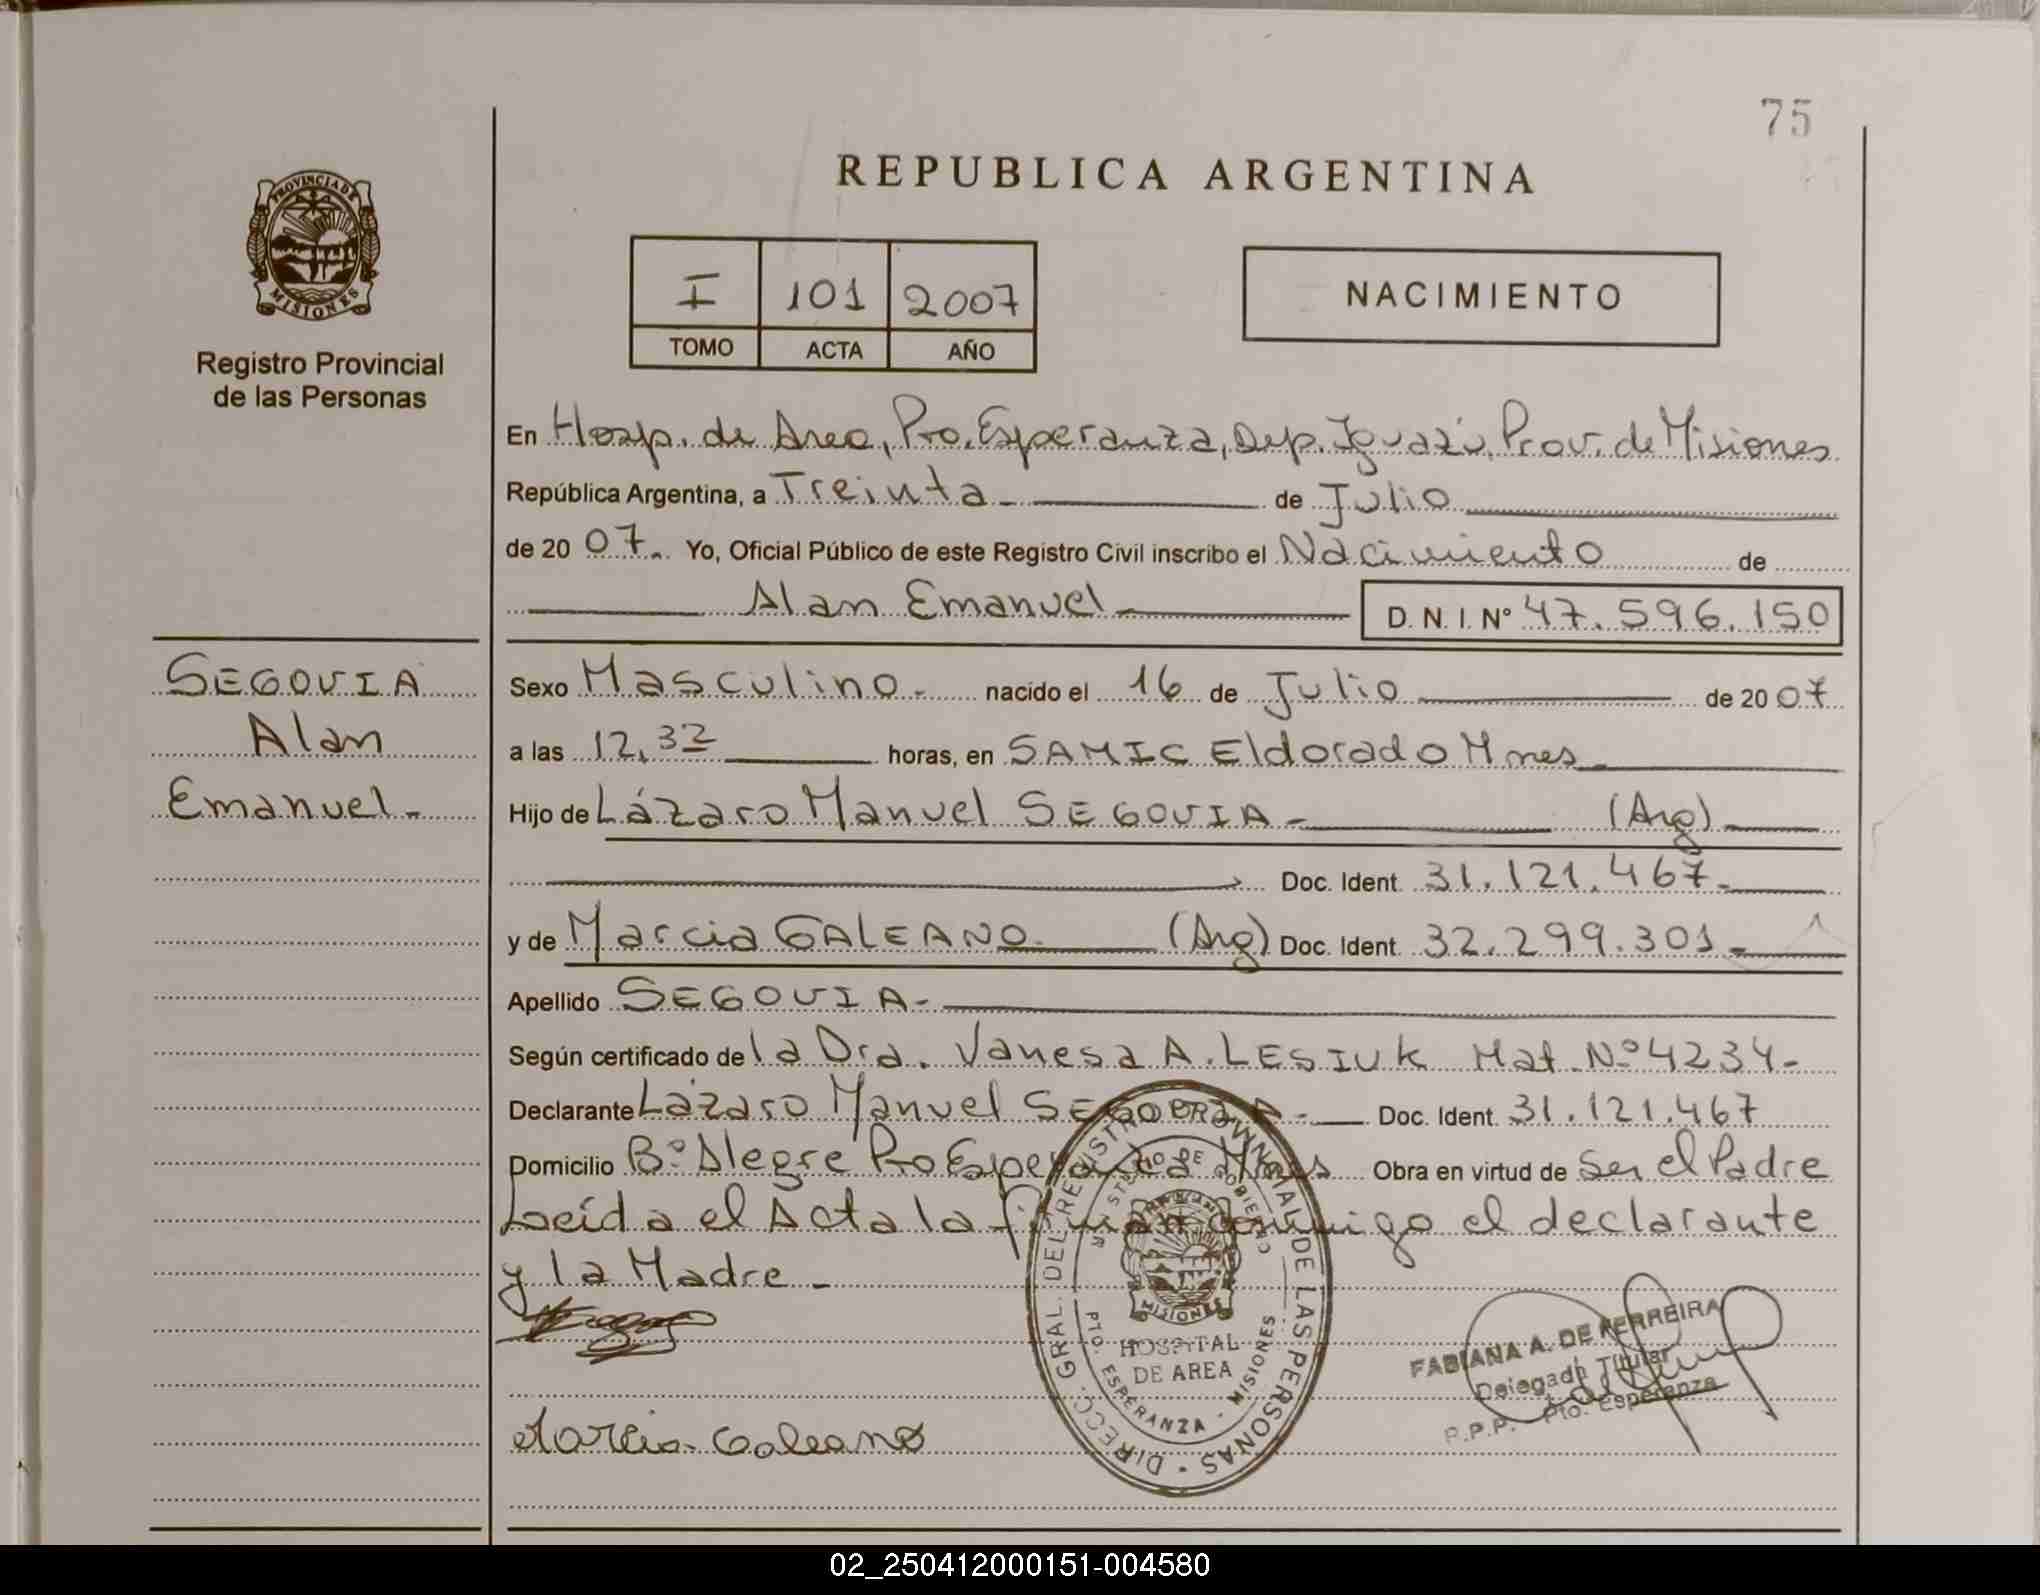 75
REPUBLICA ARGENTINA
PROVINCIA DE
MISIONES
Registro Provincial
de las Personas
I 101 2007
TOMO ACTA AÑO
NACIMIENTO
En Hosp. de Area, Pto. Esperanza, Dep. Iguazú, Prov. de Misiones
República Argentina, a Treinta de Julio
de 20 07. Yo, Oficial Público de este Registro Civil inscribo el Nacimiento de
Alan Emanuel D. N. I. Nº 47.596.150
SEGOVIA
Alan
Emanuel.-
Sexo Masculino.- nacido el 16 de Julio de 20 07
a las 12,32 horas, en SAMIC Eldorado Mnes
Hijo de Lázaro Manuel SEGOVIA - (Arg)
Doc. Ident. 31.121.467.-
y de Marcia GALEANO. (Arg) Doc. Ident. 32.299.301.-
Apellido SEGOVIA.-
Según certificado de la Dra. Vanesa A. LESIUK Mat. Nº 4234-
Declarante Lázaro Manuel SEGOVIA.- Doc. Ident. 31.121.467
Domicilio Bº Alegre Pto Esperanza Mnes Obra en virtud de Ser el Padre
Leída el Acta la firman conmigo el declarante
y la Madre -
Marcia Galeano
DIRECC. GRAL. DEL REGISTRO PROVINCIAL DE LAS PERSONAS
MINISTERIO DE GOBIERNO
MISIONES
HOSPITAL
DE AREA
PTO. ESPERANZA - MISIONES
FABIANA A. DE FERREIRA
Delegada Titular
R.P.P. Pto. Esperanza
02_250412000151-004580